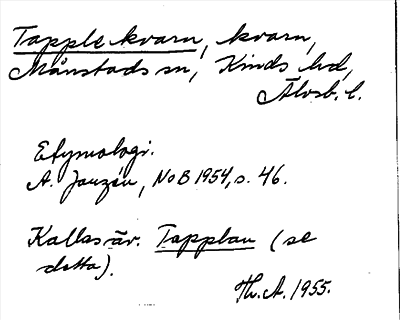 Tapplekvarn, kvarn,
Månstads sn, Kinds hd,
Älvsb. l.
Etymologi.
A. Janzén, NoB 1954, s. 46.
Kallas äv. Tapplan (se
detta).
Th. A. 1955.